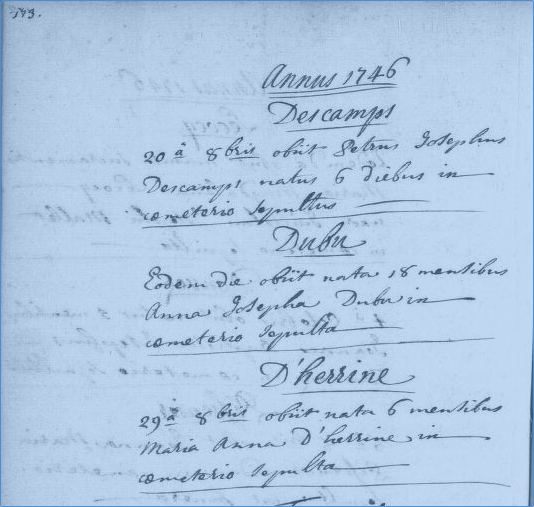 173.
Annus 1746
Descamps
20â 8bris obiit Petrus Josephus
Descamps natus 6 diebus in
cœmeterio sepultus
Dubu
Eodem die obiit nata 18 mensibus
Anna Josepha Dubu in
cœmeterio sepulta
D'herrine
29â 8bris obiit nata 6 mensibus
Maria Anna D'herrine in
cœmeterio sepulta